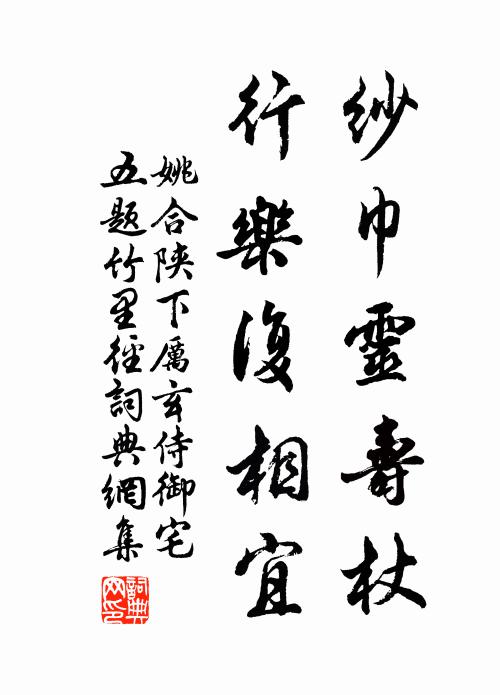 紗巾靈壽杖
行樂復相宜
姚合陝下厲玄侍御宅
五題竹里徑詞典網集